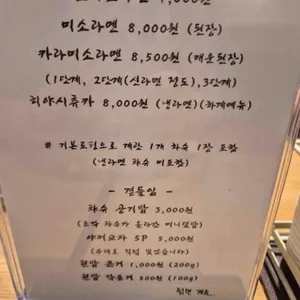 0원
미소라멘 8,000원 (된장)
카라미소라멘 8,500원 (매운된장)
(1단계, 2단계(신라면 정도), 3단계)
히야시츄카 8,000원 (냉라멘) (하계메뉴)
# 기본토핑으로 계란 1개 차슈 1장 포함
(냉라멘 차슈 미포함)
- 곁들임 -
차슈 공기밥 3,000원
(조각 차슈가 올라간 미니덮밥)
야끼교자 5P 5,000원
(수제로 직접 빚었습니다)
흰밥 큰거 1,000원 (200g)
흰밥 작은거 500원 (100g)